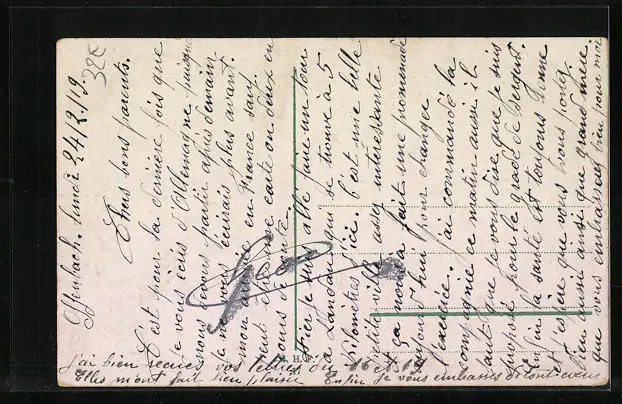 Offenbach. lundi 24/2/19
Mes bons parents.
C'est pour la dernière fois que
je vous écris d'Allemagne puisque
nous serons partis après demain
je ne vous écrirais plus avant
mon arrivée en France sauf
peut être une carte ou deux en
cours de route.
Hier je suis allé faire un tour
à Landau qui se trouve à 5
Kilomètres d'ici. C'est une belle
petite ville assez interessante
et ça nous a fait une promenade
aujourd'hui pour changer
exercice. j'ai commandé la
compagnie ce matin aussi il
faut que je vous dise que je suis
proposé pour le grade de sergent.
Enfin la santé est toujours bonne
j'espère que vous vous portez
bien aussi ainsi que grand mère.
que vous embrasserez bien pour moi
Geo
M. H. F.
32F
j'ai bien reçues vos lettres du 16 et 19
Elles m'ont fait bien plaisir Enfin je vous embrasse de tout cœur